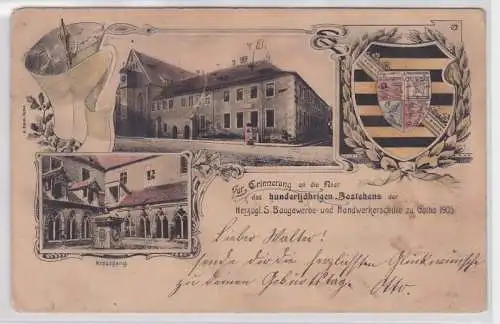 Zur Erinnerung an die Feier
des hundertjährigen Bestehens der
Herzogl. S. Baugewerbe- und Handwerkerschule zu Gotha 1905
Kreuzgang
Lieber Walter!
sende dir die herzlichsten Glückwünsche
zu deinem Geburtstage Otto.